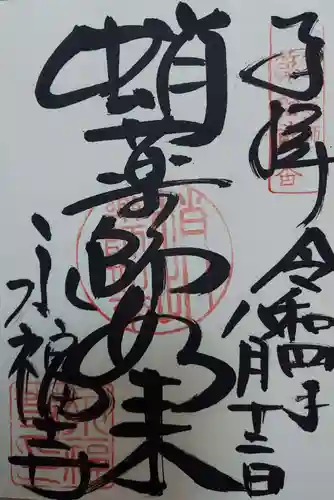 奉拝 令和四年
八月十二日
蛸薬師如来
永福寺